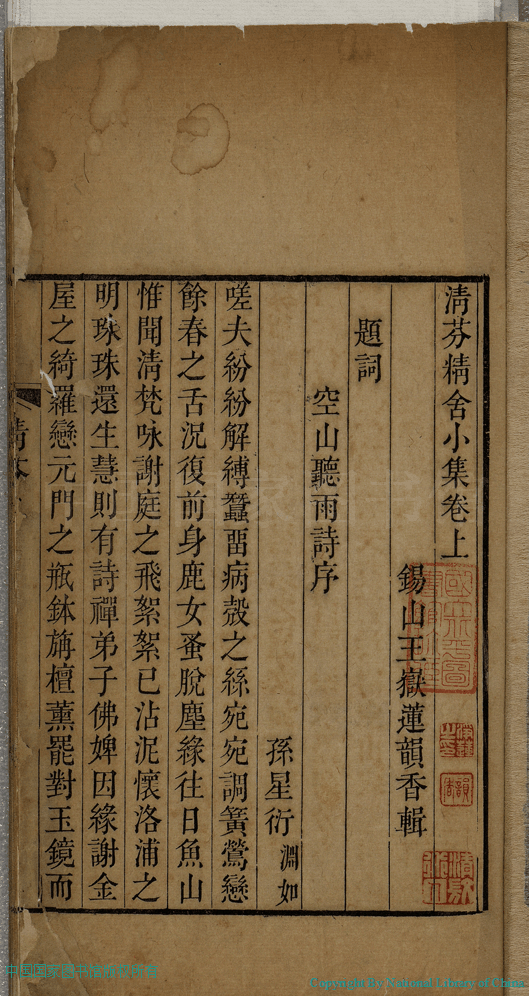 清芬精舍小集卷上
錫山王嶽蓮韻香輯
題詞
空山聽雨詩序
孫星衍 淵如
嗟夫紛紛解縛蠶畱病殼之絲宛宛調簧鶯戀
餘春之舌況復前身鹿女蚤脫塵緣往日魚山
惟聞清梵咏謝庭之飛絮絮已沾泥懷洛浦之
明珠珠還生慧則有詩禪弟子佛婢因緣謝金
屋之綺羅戀元門之瓶鉢旃檀薰罷對玉鏡而
Copyright By National Library of China